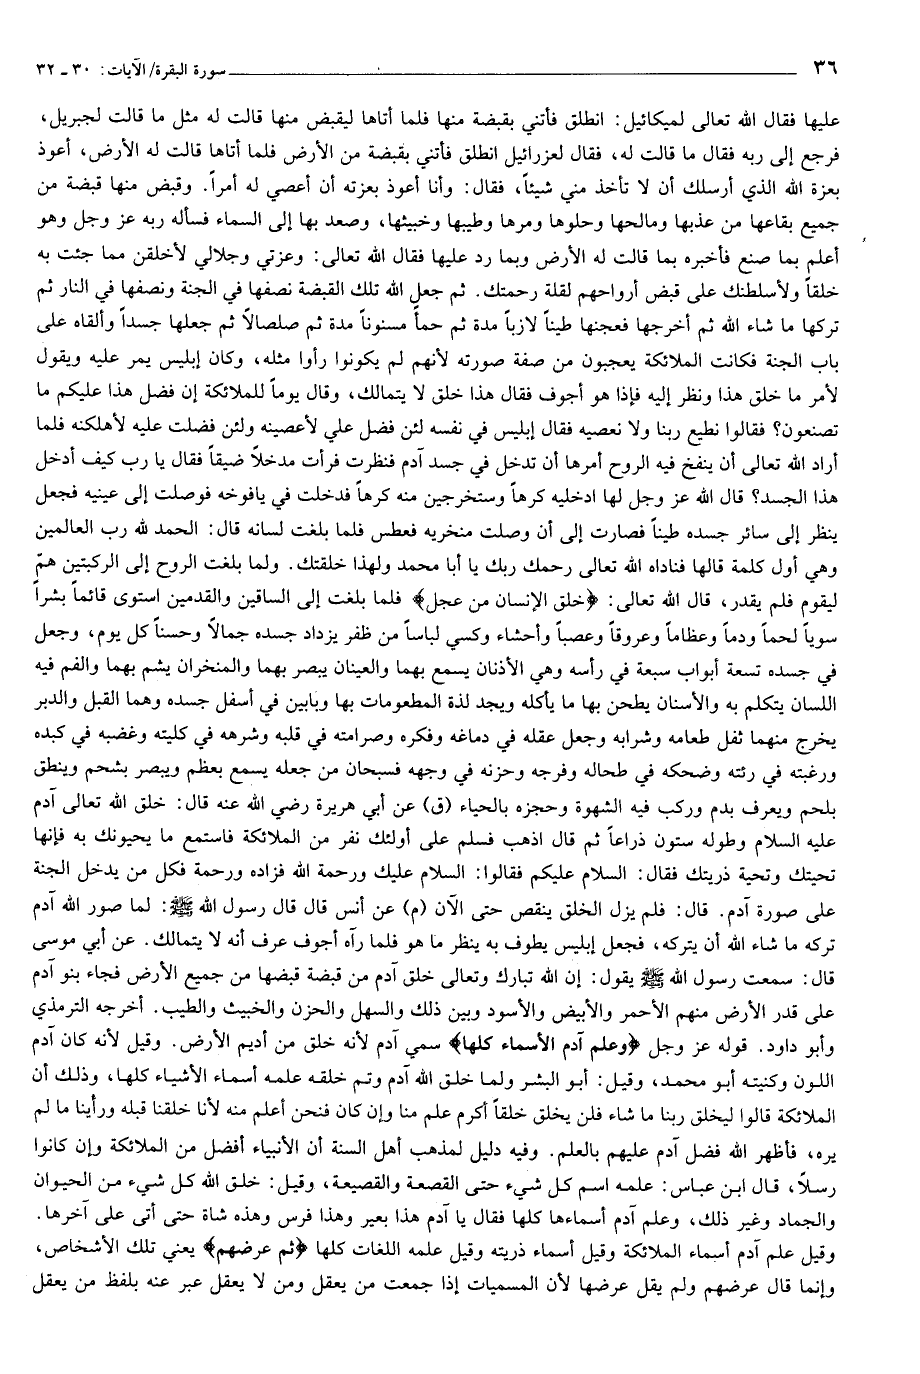 ٣٦ سورة البقرة/ الآيات: ٣٠ ـ ٣٢
عليها فقال الله تعالى لميكائيل: انطلق فأتني بقبضة منها فلما أتاها ليقبض منها قالت له مثل ما قالت لجبريل،
فرجع إلى ربه فقال ما قالت له، فقال لعزرائيل انطلق فأتني بقبضة من الأرض فلما أتاها قالت له الأرض، أعوذ
بعزة الله الذي أرسلك أن لا تأخذ مني شيئاً، فقال: وأنا أعوذ بعزته أن أعصي له أمراً. وقبض منها قبضة من
جميع بقاعها من عذبها ومالحها وحلوها ومرها وطيبها وخبيثها، وصعد بها إلى السماء فسأله ربه عز وجل وهو
أعلم بما صنع فأخبره بما قالت له الأرض وبما رد عليها فقال الله تعالى: وعزتي وجلالي لأخلقن مما جئت به
خلقاً ولأسلطنك على قبض أرواحهم لقلة رحمتك. ثم جعل الله تلك القبضة نصفها في الجنة ونصفها في النار ثم
تركها ما شاء الله ثم أخرجها فعجنها طيناً لازباً مدة ثم حمأً مسنوناً مدة ثم صلصالاً ثم جعلها جسداً وألقاه على
باب الجنة فكانت الملائكة يعجبون من صفة صورته لأنهم لم يكونوا رأوا مثله، وكان إبليس يمر عليه ويقول
لأمر ما خلق هذا ونظر إليه فإذا هو أجوف فقال هذا خلق لا يتمالك، وقال يوماً للملائكة إن فضل هذا عليكم ما
تصنعون؟ فقالوا نطيع ربنا ولا نعصيه فقال إبليس في نفسه لئن فضل علي لأعصينه ولئن فضلت عليه لأهلكنه فلما
أراد الله تعالى أن ينفخ فيه الروح أمرها أن تدخل في جسد آدم فنظرت فرأت مدخلاً ضيقاً فقال يا رب كيف أدخل
هذا الجسد؟ قال الله عز وجل لها ادخليه كرهاً وستخرجين منه كرهاً فدخلت في يافوخه فوصلت إلى عينيه فجعل
ينظر إلى سائر جسده طيناً فصارت إلى أن وصلت منخريه فعطس فلما بلغت لسانه قال: الحمد لله رب العالمين
وهي أول كلمة قالها فناداه الله تعالى رحمك ربك يا أبا محمد ولهذا خلقتك. ولما بلغت الروح إلى الركبتين همّ
ليقوم فلم يقدر، قال الله تعالى: ﴿خلق الإنسان من عجل﴾ فلما بلغت إلى الساقين والقدمين استوى قائماً بشراً
سوياً لحماً ودماً وعظاماً وعروقاً وعصباً وأحشاء وكسي لباساً من ظفر يزداد جسده جمالاً وحسناً كل يوم، وجعل
في جسده تسعة أبواب سبعة في رأسه وهي الأذنان يسمع بهما والعينان يبصر بهما والمنخران يشم بهما والفم فيه
اللسان يتكلم به والأسنان يطحن بها ما يأكله ويجد لذة المطعومات بها وبابين في أسفل جسده وهما القبل والدبر
يخرج منهما ثفل طعامه وشرابه وجعل عقله في دماغه وفكره وصرامته في قلبه وشرهه في كليته وغضبه في كبده
ورغبته في رئته وضحكه في طحاله وفرحه وحزنه في وجهه فسبحان من جعله يسمع بعظم ويبصر بشحم وينطق
بلحم ويعرف بدم وركب فيه الشهوة وحجزه بالحياء (ق) عن أبي هريرة رضي الله عنه قال: خلق الله تعالى آدم
عليه السلام وطوله ستون ذراعاً ثم قال اذهب فسلم على أولئك نفر من الملائكة فاستمع ما يحيونك به فإنها
تحيتك وتحية ذريتك فقال: السلام عليكم فقالوا: السلام عليك ورحمة الله فزاده ورحمة فكل من يدخل الجنة
على صورة آدم. قال: فلم يزل الخلق ينقص حتى الآن (م) عن أنس قال قال رسول الله ﷺ: لما صور الله آدم
تركه ما شاء الله أن يتركه، فجعل إبليس يطوف به ينظر ما هو فلما رآه أجوف عرف أنه لا يتمالك. عن أبي موسى
قال: سمعت رسول الله ﷺ يقول: إن الله تبارك وتعالى خلق آدم من قبضة قبضها من جميع الأرض فجاء بنو آدم
على قدر الأرض منهم الأحمر والأبيض والأسود وبين ذلك والسهل والحزن والخبيث والطيب. أخرجه الترمذي
وأبو داود. قوله عز وجل ﴿وعلم آدم الأسماء كلها﴾ سمي آدم لأنه خلق من أديم الأرض. وقيل لأنه كان آدم
اللون وكنيته أبو محمد، وقيل: أبو البشر ولما خلق الله آدم وتم خلقه علمه أسماء الأشياء كلها، وذلك أن
الملائكة قالوا ليخلق ربنا ما شاء فلن يخلق خلقاً أكرم علم منا وإن كان فنحن أعلم منه لأنا خلقنا قبله ورأينا ما لم
يره، فأظهر الله فضل آدم عليهم بالعلم. وفيه دليل لمذهب أهل السنة أن الأنبياء أفضل من الملائكة وإن كانوا
رسلاً، قال ابن عباس: علمه اسم كل شيء حتى القصعة والقصيعة، وقيل: خلق الله كل شيء من الحيوان
والجماد وغير ذلك، وعلم آدم أسماءها كلها فقال يا آدم هذا بعير وهذا فرس وهذه شاة حتى أتى على آخرها.
وقيل علم آدم أسماء الملائكة وقيل أسماء ذريته وقيل علمه اللغات كلها ﴿ثم عرضهم﴾ يعني تلك الأشخاص،
وإنما قال عرضهم ولم يقل عرضها لأن المسميات إذا جمعت من يعقل ومن لا يعقل عبر عنه بلفظ من يعقل